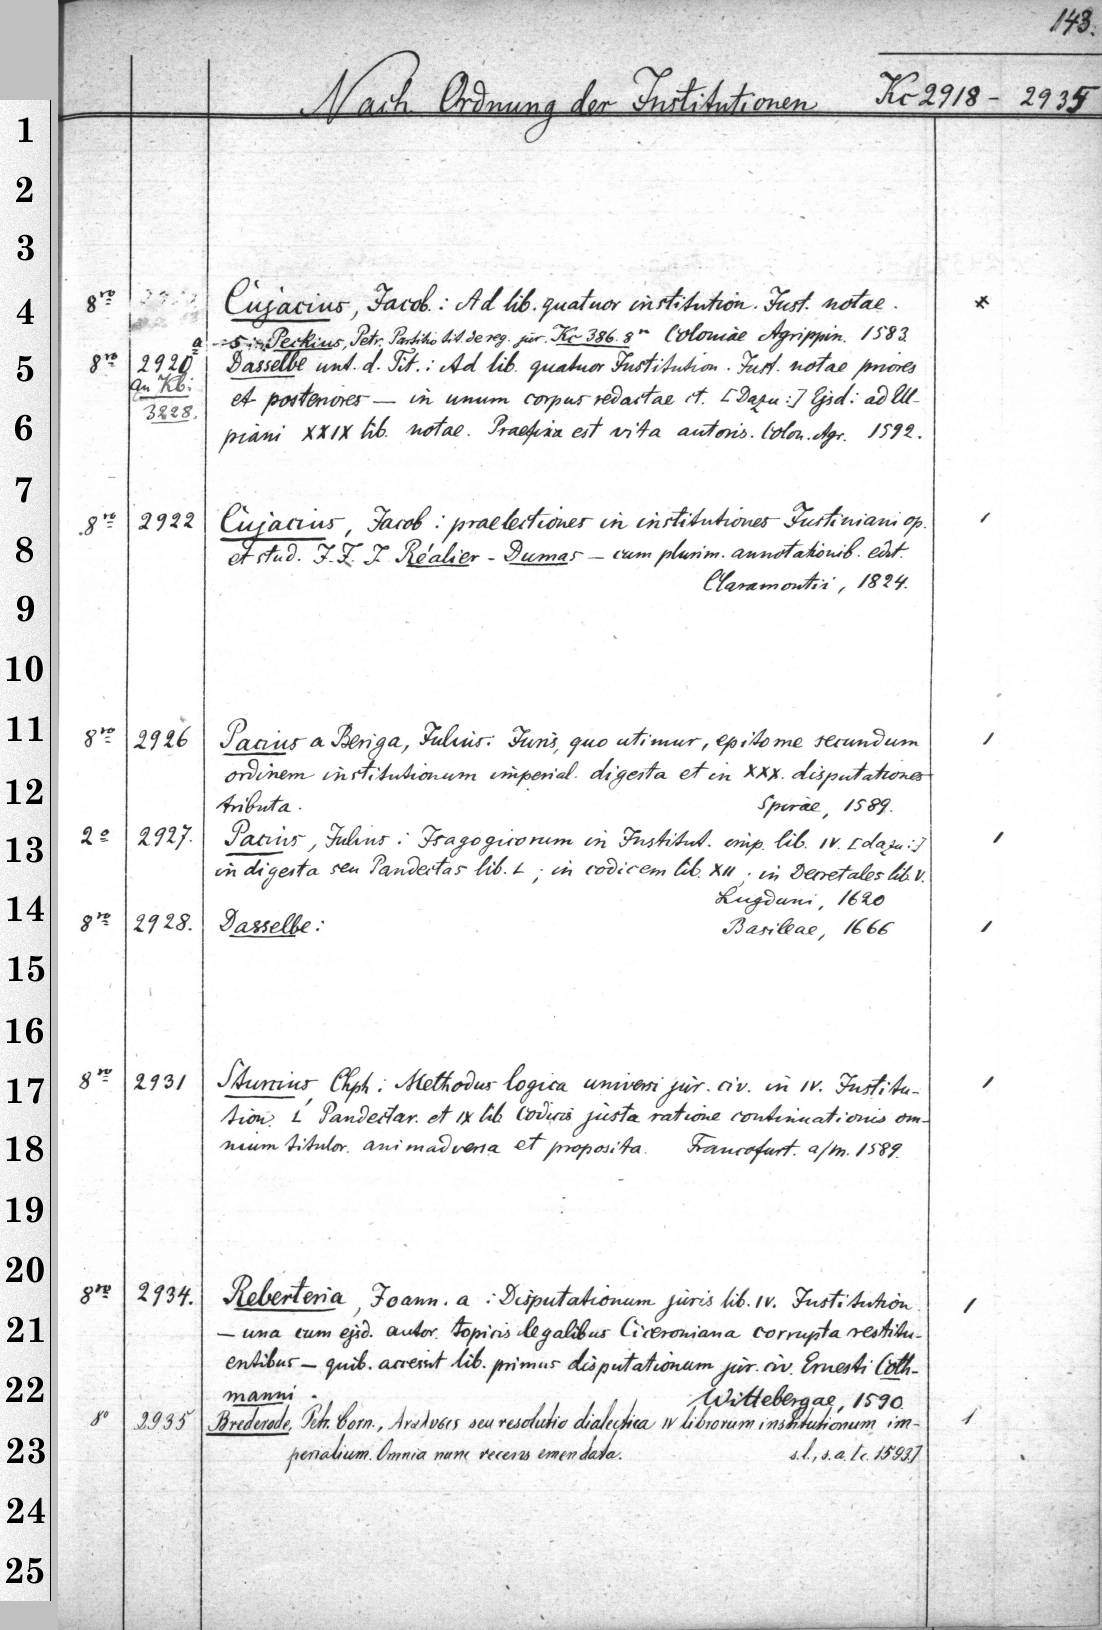 143.
Nach Ordnung der Institutionen Kc 2918 - 2935
1
2
3
4
5
6
7
8
9
10
11
12
13
14
15
16
17
18
19
20
21
22
23
24
25
8ro Cujacius, Jacob.: Ad lib. quatuor institution. Just. notae.
a - 5 Peckius, Petr. Partitio tit. de reg. jur. Kc 386. 8ro Coloniae Agrippin. 1583.
8ro 2920 Dasselbe unt. d. Tit.: Ad lib. quatuor Institution. Just. notae priores
an Kb: et posteriores — in unum corpus redactae et. [Dazu:] Ejsd: ad Ul-
3228. piani XXIX lib. notae. Praefixa est vita autoris. Colon. Agr. 1592.
8ro 2922 Cujacius, Jacob: praelectiones in institutiones Justiniani op.
et stud. J. F. J Réalier - Dumas — cum plurim. annotationib. edit.
Claramontii, 1824.
8ro 2926 Pacius a Beriga, Julius: Juris, quo utimur, epitome secundum
ordinem institutionum imperial. digesta et in XXX. disputationes
tributa. Spirae, 1589.
2o 2927. Pacius, Julius: Isagogicorum in Institut. imp. lib. IV. [dazu:]
in digesta seu Pandectas lib. L; in codicem lib. XII; in Decretales lib. V.
Lugduni, 1620
8ro 2928. Dasselbe: Basileae, 1666
8ro 2931 Sturcius, Chph: Methodus logica universi jur. civ. in IV. Institu-
tion. L Pandectar. et IX lib. Codicis justa ratione continuationis om-
nium titulor. animadversa et proposita. Francofurt. a/m. 1589.
8ro 2934. Reberteria, Joann. a: Disputationum juris lib. IV. Institution.
— una cum ejsd. autor. topicis legalibus Ciceroniana corrupta restitu-
entibus — quib. accessit lib. primus disputationum jur. civ. Ernesti Coth-
manni. Wittebergae, 1590
8o 2935 Brederode, Petr. Corn., Analysis seu resolutio dialectica IV librorum institutionum im-
perialium. Omnia nunc recens emendata. s.l., s.a. [c. 1593]